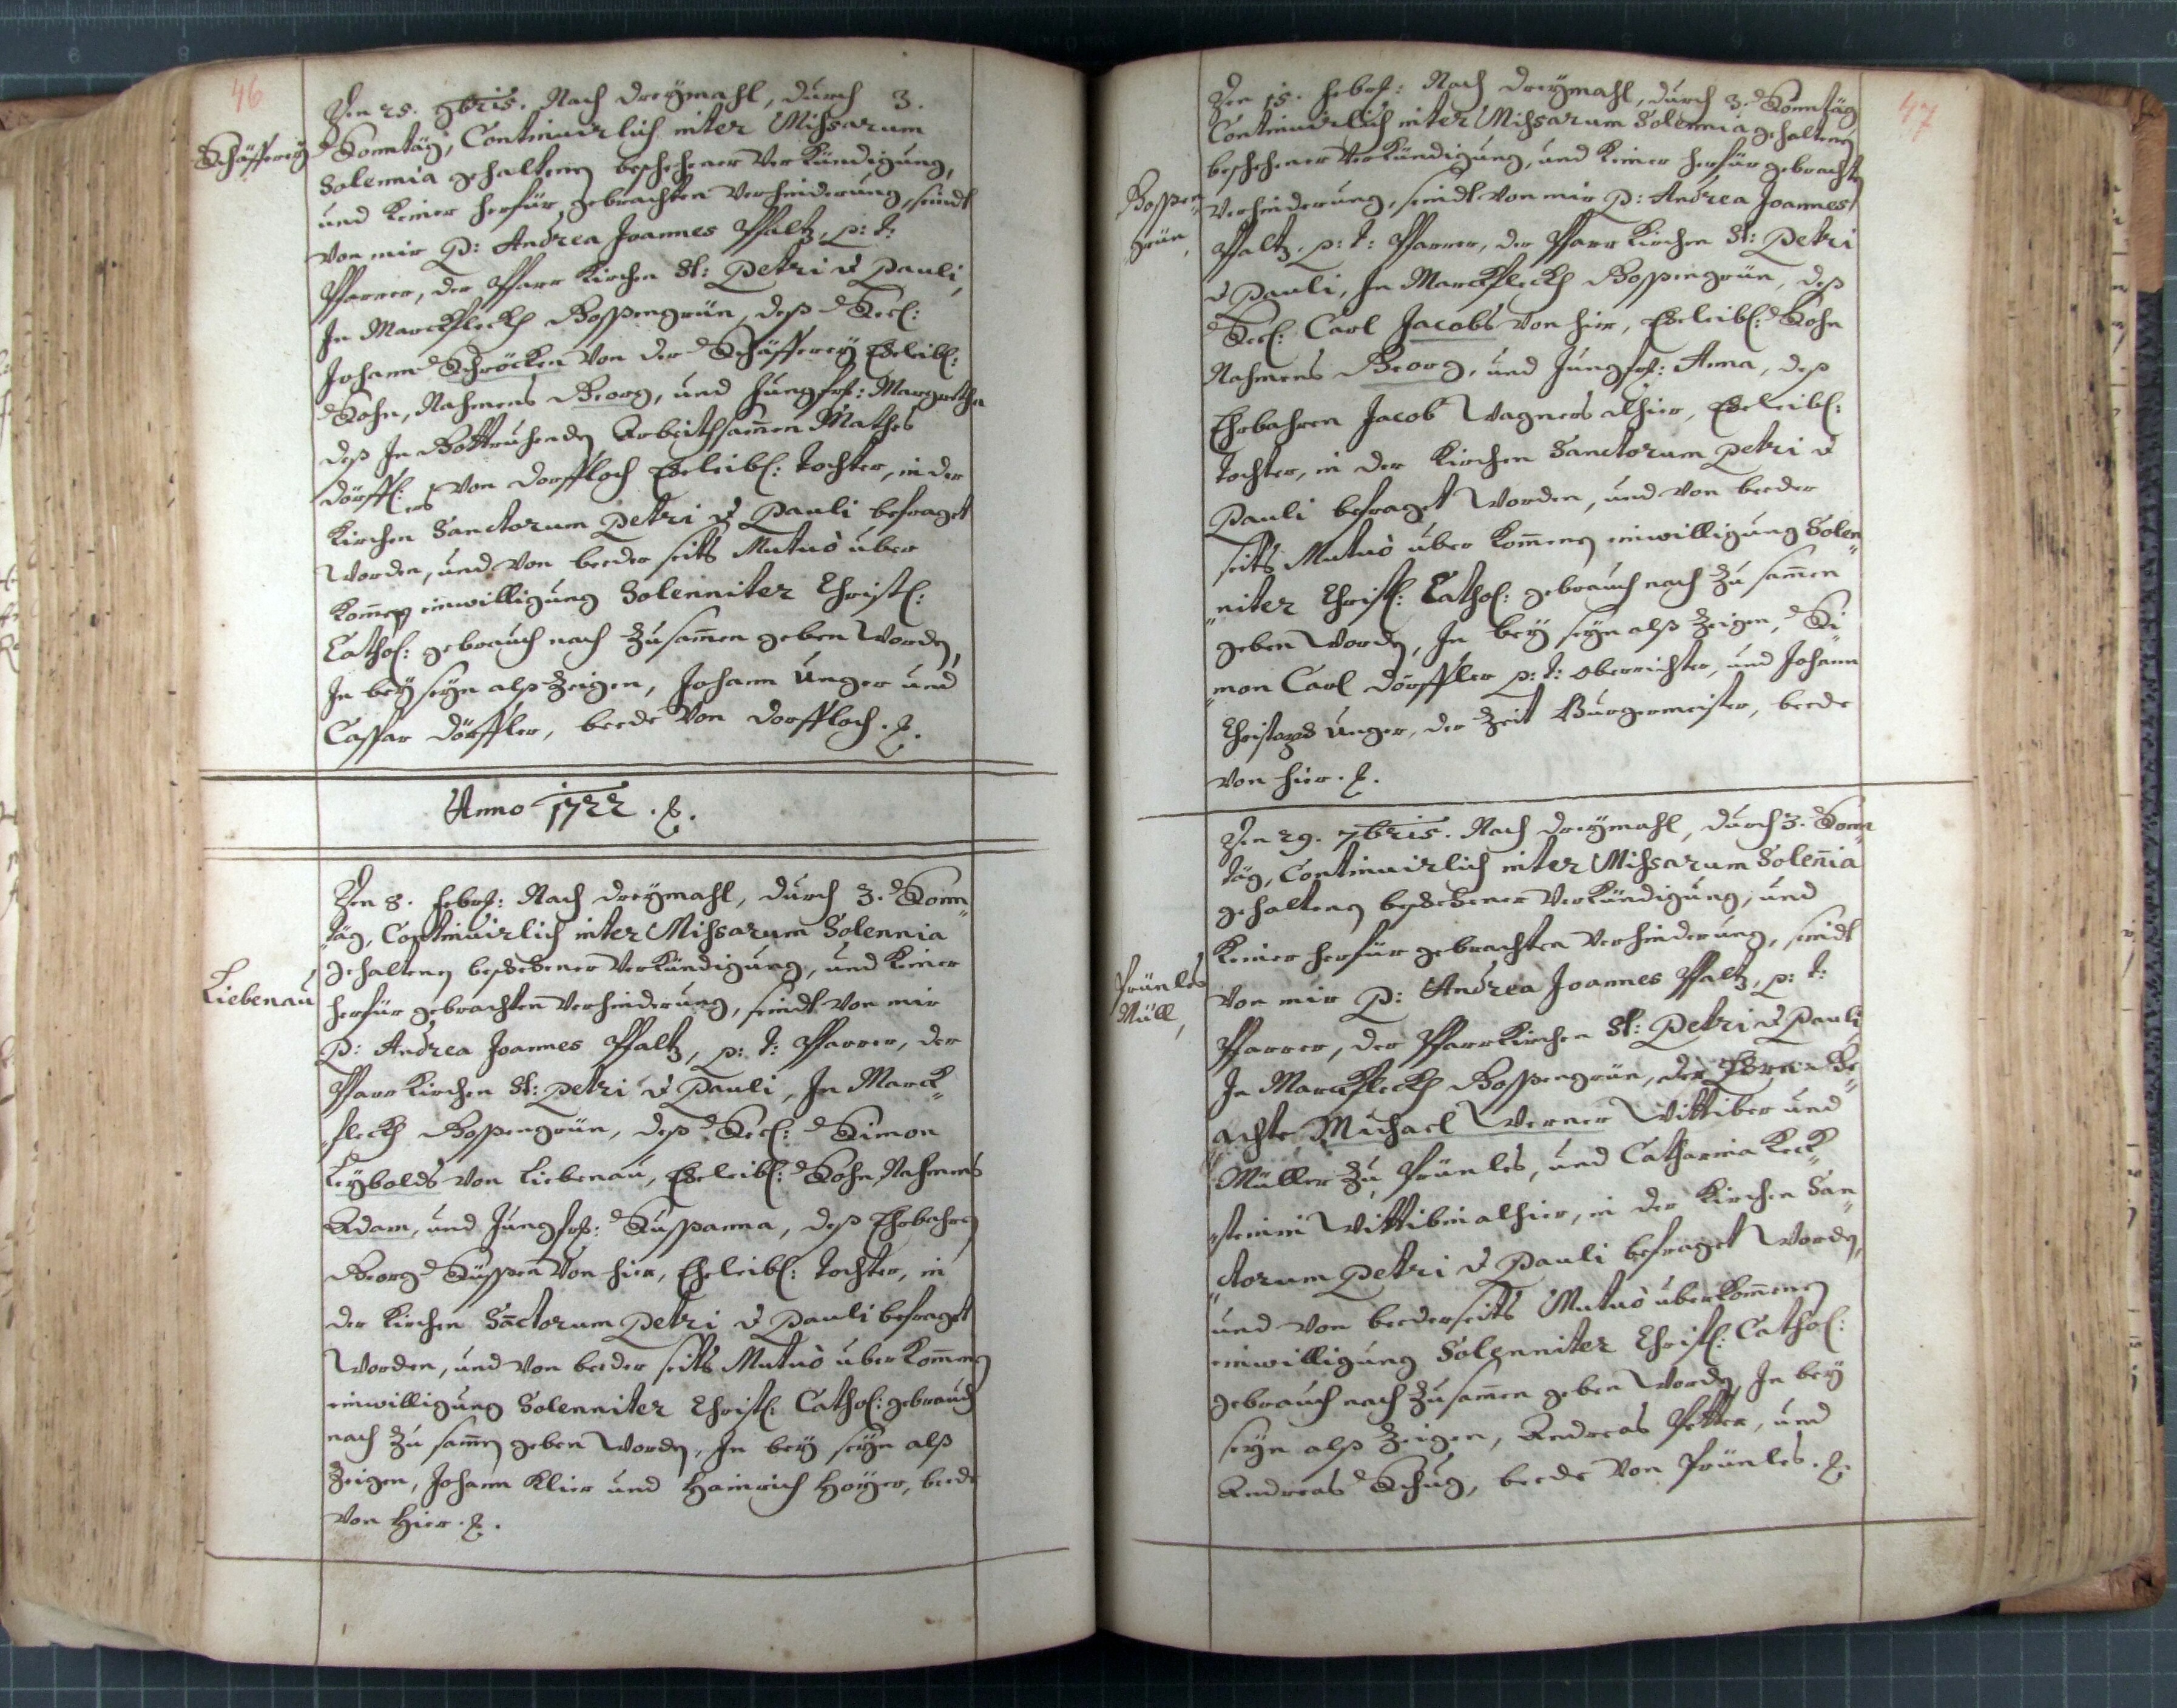 46
Schäfferey
Den 25. 9bris. Nach dreymahl, durch 3.
Sonntäg, Continuirlich inter Missarum
Solemnia gehaltenen beschehener Verkündigung,
und keiner herfür gebrachten Verhinderung, seindt
von mir P: Andrea Joannes Pfaltz, p: t:
Pfarrer, der Pfarr Kirchen St: Petri & Pauli,
In Marckfleckh Bossengrün, deß Seel:
Johann Schröcken von der Schäfferey Eheleibl:
Sohn, Nahmens Georg, und Jungfrß: Margretha
deß In Gottruhenden Arbeithsamen Mathes
Dörffl:ers von Dorffloch Eheleibl: tochter, in der
Kirchen Sanctorum Petri & Pauli befraget
worden, und von beeder seits Mutuò über
kom̄en einwilligung Solenniter Christl:
Cathol: gebrauch nach zusam̄en geben worden,
In bey seyn alß Zeigen, Johann Unger und
Caspar Dörffler, beede von Dorffloch. x.
Anno 1722. x.
Liebenau
Den 8. Febrß: Nach dreymahl, durch 3. Sonn„
„täg, Continuirlich inter Missarum Solennia
gehaltenen beschehener Verkündigung, und keiner
herfür gebrachten Verhinderung, seindt von mir
P: Andrea Joannes Pfaltz, p: t: Pfarrer, der
Pfarr Kirchen St: Petri & Pauli, In Marck„
„fleckh Bossengrün, deß Seel: Simon
Leybolds von Liebenau, Eheleibl: Sohn, Nahmens
Adam, und Jungfrß: Sussanna, deß Ehrbahren
Georg Süssen von hier, Eheleibl: tochter, in
der Kirchen Sāctorum Petri & Pauli befraget
worden, und von beeder seits Mutuò über kom̄enen
einwilligung Solenniter Christl: Cathol: gebrauch
nach zu sam̄en geben worden, In bey seyn alß
Zeigen, Johann Klier und Hainrich Hoyer, beede
von Hier. x.
47
Bossen„
„grün,
Den 15. Febrß: Nach dreymahl, durch 3. Sonntäg
Continuirlich inter Missarum Solemnia gehaltenen
beschehener Verkündigung, und keiner herfür gebrachten
Verhinderung, seindt von mir P: Andrea Joannes
Pfaltz. p: t: Pfarrer, der Pfarr Kirchen St: Petri
& Pauli, In Marckfleckh Bossengrün, deß
Seel: Carl Jacobs von hier, Eheleibl: Sohn
Nahmens Georg, und Jungfrß: Anna, deß
Ehrbahren Jacob Wagners alhier, Eheleibl:
tochter, in der Kirchen Sanctorum Petri &
Pauli befraget worden, und von beeder
seits Mutuò über kom̄enen einwilligung Solen„
„niter Christl: Cathol: gebrauch nach zu sam̄en
geben worden, In bey seyn alß Zeigen, Si„
„mon Carl Dörffler p: t: oberrichter, und Johann
Christoph Unger, der Zeit Burgermeister, beede
von hier. x.
Prünles
Müll,
Den 29. 7bris. Nach dreymahl, durch 3. Sonn„
täg, Continuirlich inter Missarum Soleñia
gehaltenen beschehener Verkündigung, und
keiner herfür gebrachten Verhinderung, seindt
von mir P: Andrea Joannes Pfaltz, p: t:
Pfarrer, der Pfarr Kirchen St: Petri & Pauli
In Marckfleckh Bossengrün, der Ehren Ge„
„achte Michael Werner Wittiber und
Müller zu Prünles, und Catharina Keck„
„steinin Wittibin alhier, in der Kirchen San„
„ctorum Petri & Pauli befraget worden,
und von beederseits Mutuò überkom̄enen
einwilligung Solenniter Christl: Cathol:
gebrauch nach zusam̄en geben worden, In bey
seyn alß Zeigen, Andreas Petter, und
Andreas Schug, beede von Prünles. x.